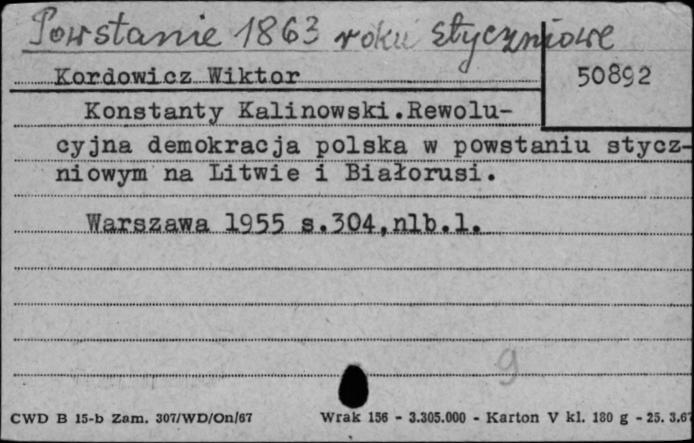 Powstanie 1863 roku styczniowe
Kordowicz Wiktor
50892
Konstanty Kalinowski.Rewolu-
cyjna demokracja polska w powstaniu stycz-
niowym na Litwie i Białorusi.
Warszawa 1955 s.304,nlb.1.
9
CWD B 15-b Zam. 307/WD/On/67 Wrak 156 - 3.305.000 - Karton V kl. 180 g - 25. 3.67